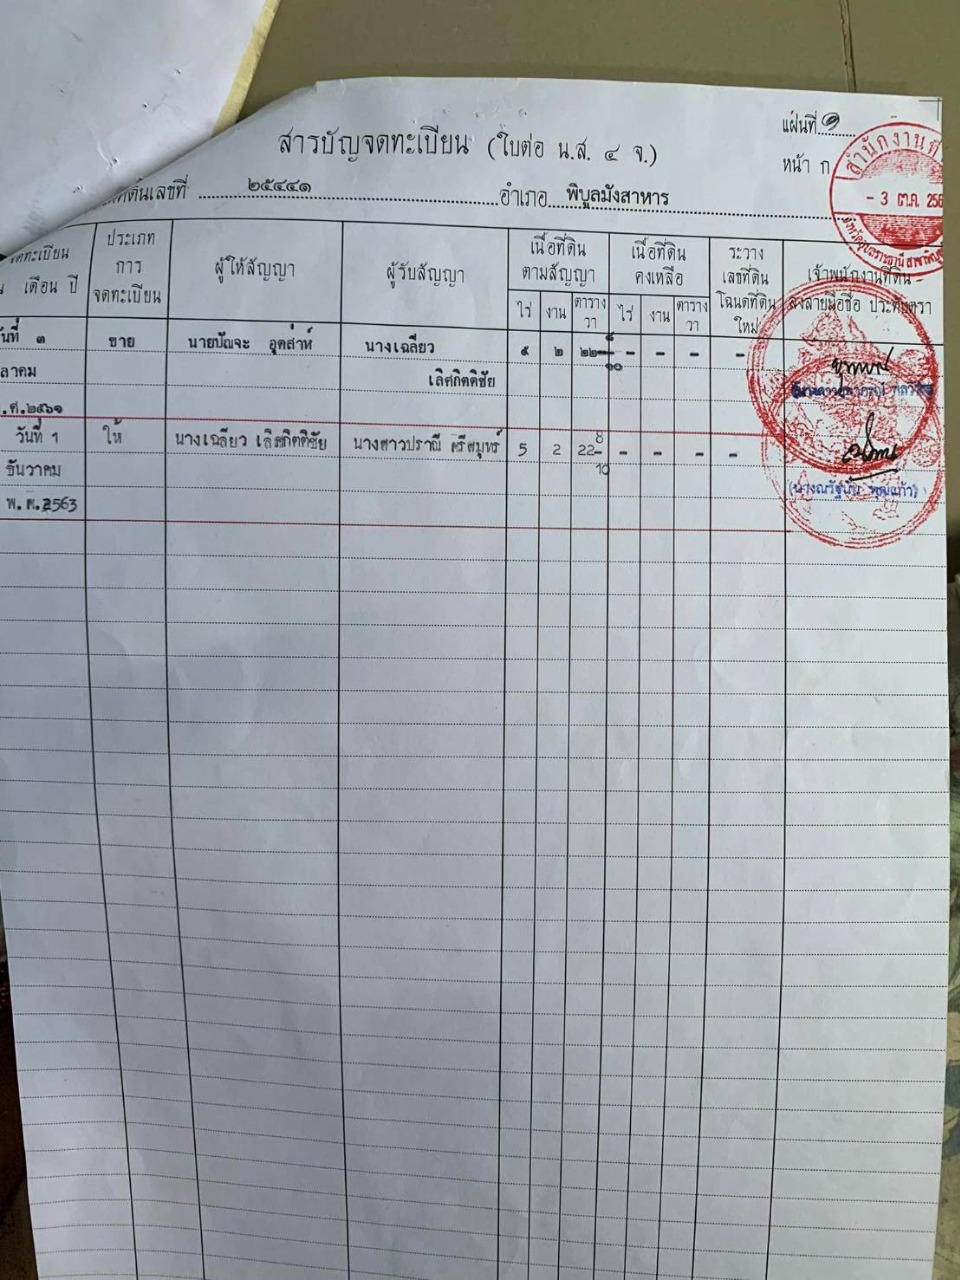 แผ่นที่ ๑
สารบัญจดทะเบียน (ใบต่อ น.ส. ๔ จ.)
หน้า ก
ที่ดินเลขที่ ๒๕๔๔๑ อำเภอ พิบูลมังสาหาร
สำนักงานที่
- 3 ต.ค. 256
จดทะเบียน
เดือน ปี
ประเภท
การ
จดทะเบียน
ผู้ให้สัญญา
ผู้รับสัญญา
เนื้อที่ดิน
ตามสัญญา
เนื้อที่ดิน
คงเหลือ
ระวาง
เลขที่ดิน
โฉนดที่ดิน
ใหม่
เจ้าพนักงานที่ดิน
ลงลายมือชื่อ ประทับตรา
ไร่ งาน ตาราง
วา
ไร่ งาน ตาราง
วา
วันที่ ๓ ขาย นายปัณจะ อุตส่าห์ นางเฉลียว ๕ ๒ ๒๒ ๘ - - - -
ลาคม เลิศกิตติชัย ๑๐
.ศ.๒๕๖๑
วันที่ 1 ให้ นางเฉลียว เลิศกิตติชัย นางสาวปราณี ศรีสมุทร์ 5 2 22- 8 - - - -
ธันวาคม 10
พ.ศ.2563